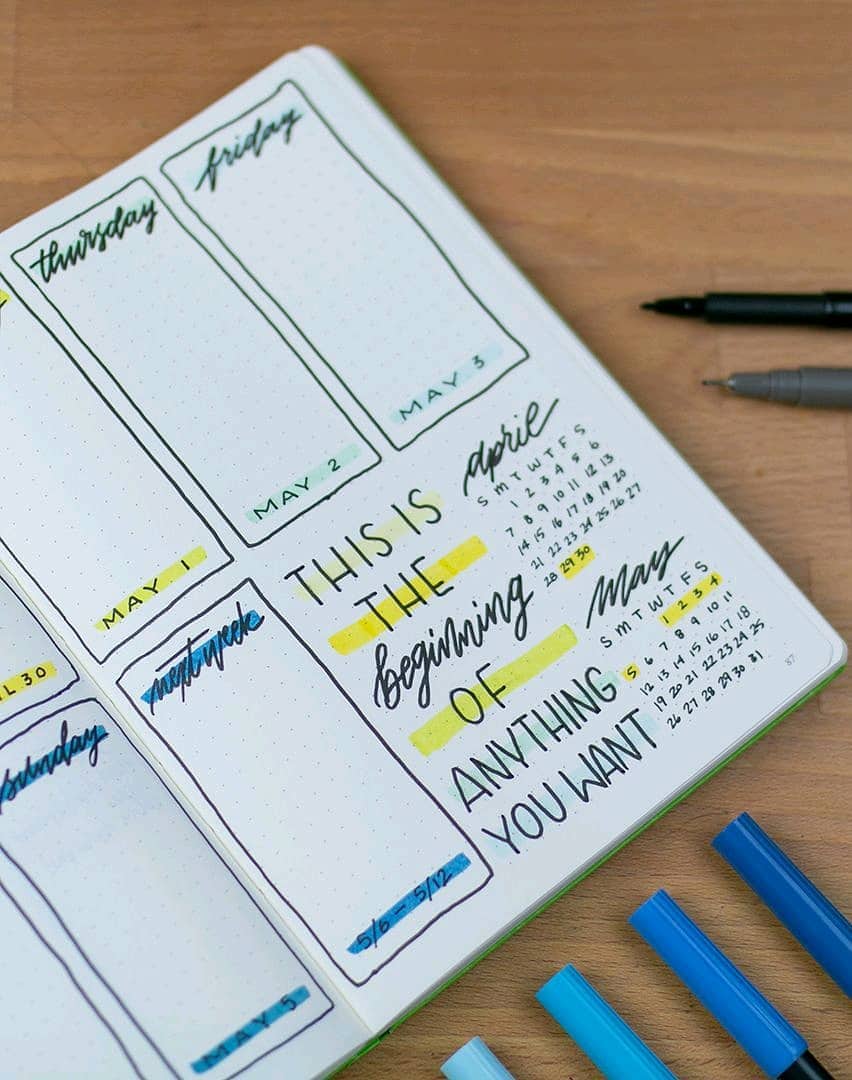 IL 30
sunday
MAY 5
MAY 1
thursday
MAY 2
friday
MAY 3
next week
5/6 – 5/12
THIS IS
THE
beginning
OF
ANYTHING
YOU WANT
april
S M T W T F S
1 2 3 4 5 6
7 8 9 10 11 12 13
14 15 16 17 18 19 20
21 22 23 24 25 26 27
28 29 30
May
S M T W T F S
1 2 3 4
5 6 7 8 9 10 11
12 13 14 15 16 17 18
19 20 21 22 23 24 25
26 27 28 29 30 31
87